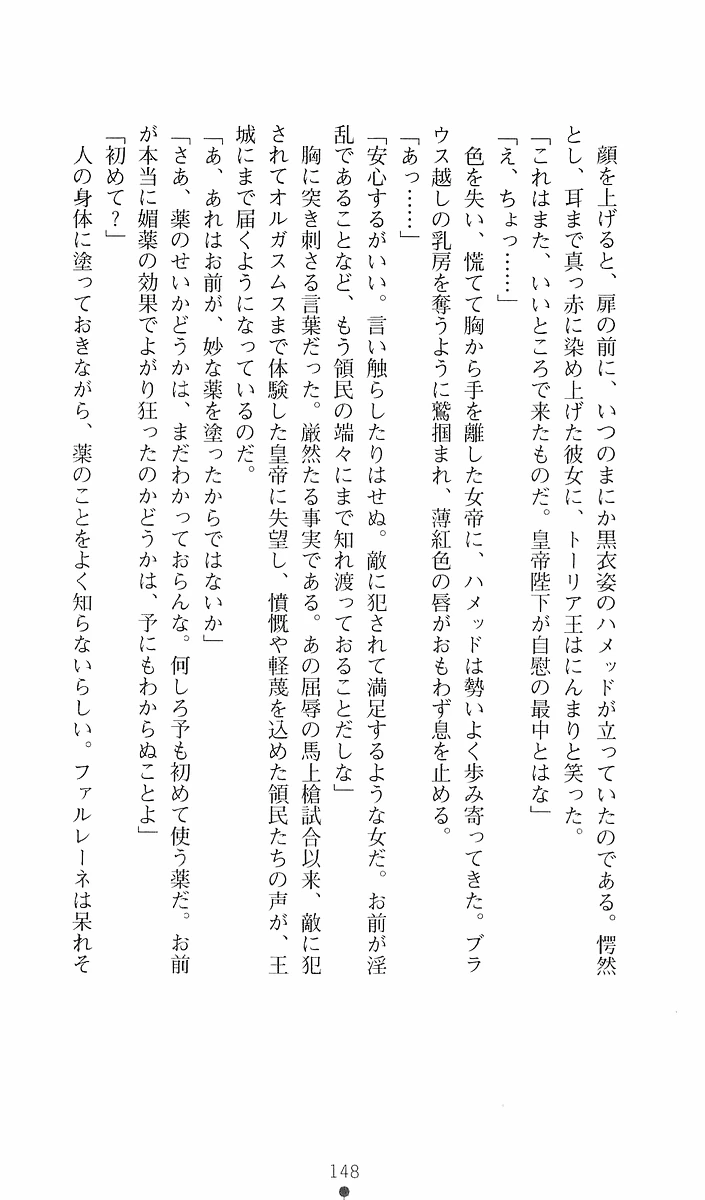 顔を上げると、扉の前に、いつのまにか黒衣姿のハメッドが立っていたのである。愕然
とし、耳まで真っ赤に染め上げた彼女に、トーリア王はにんまりと笑った。
「これはまた、いいところで来たものだ。皇帝陛下が自慰の最中とはな」
「え、ちょっ……」
色を失い、慌てて胸から手を離した女帝に、ハメッドは勢いよく歩み寄ってきた。ブラ
ウス越しの乳房を奪うように鷲掴まれ、薄紅色の唇がおもわず息を止める。
「あっ……」
「安心するがいい。言い触らしたりはせぬ。敵に犯されて満足するような女だ。お前が淫
乱であることなど、もう領民の端々にまで知れ渡っておることだしな」
胸に突き刺さる言葉だった。厳然たる事実である。あの屈辱の馬上槍試合以来、敵に犯
されてオルガスムスまで体験した皇帝に失望し、憤慨や軽蔑を込めた領民たちの声が、王
城にまで届くようになっているのだ。
「あ、あれはお前が、妙な薬を塗ったからではないか」
「さあ、薬のせいかどうかは、まだわかっておらんな。何しろ予も初めて使う薬だ。お前
が本当に媚薬の効果でよがり狂ったのかどうかは、予にもわからぬことよ」
「初めて？」
人の身体に塗っておきながら、薬のことをよく知らないらしい。ファルレーネは呆れそ
148